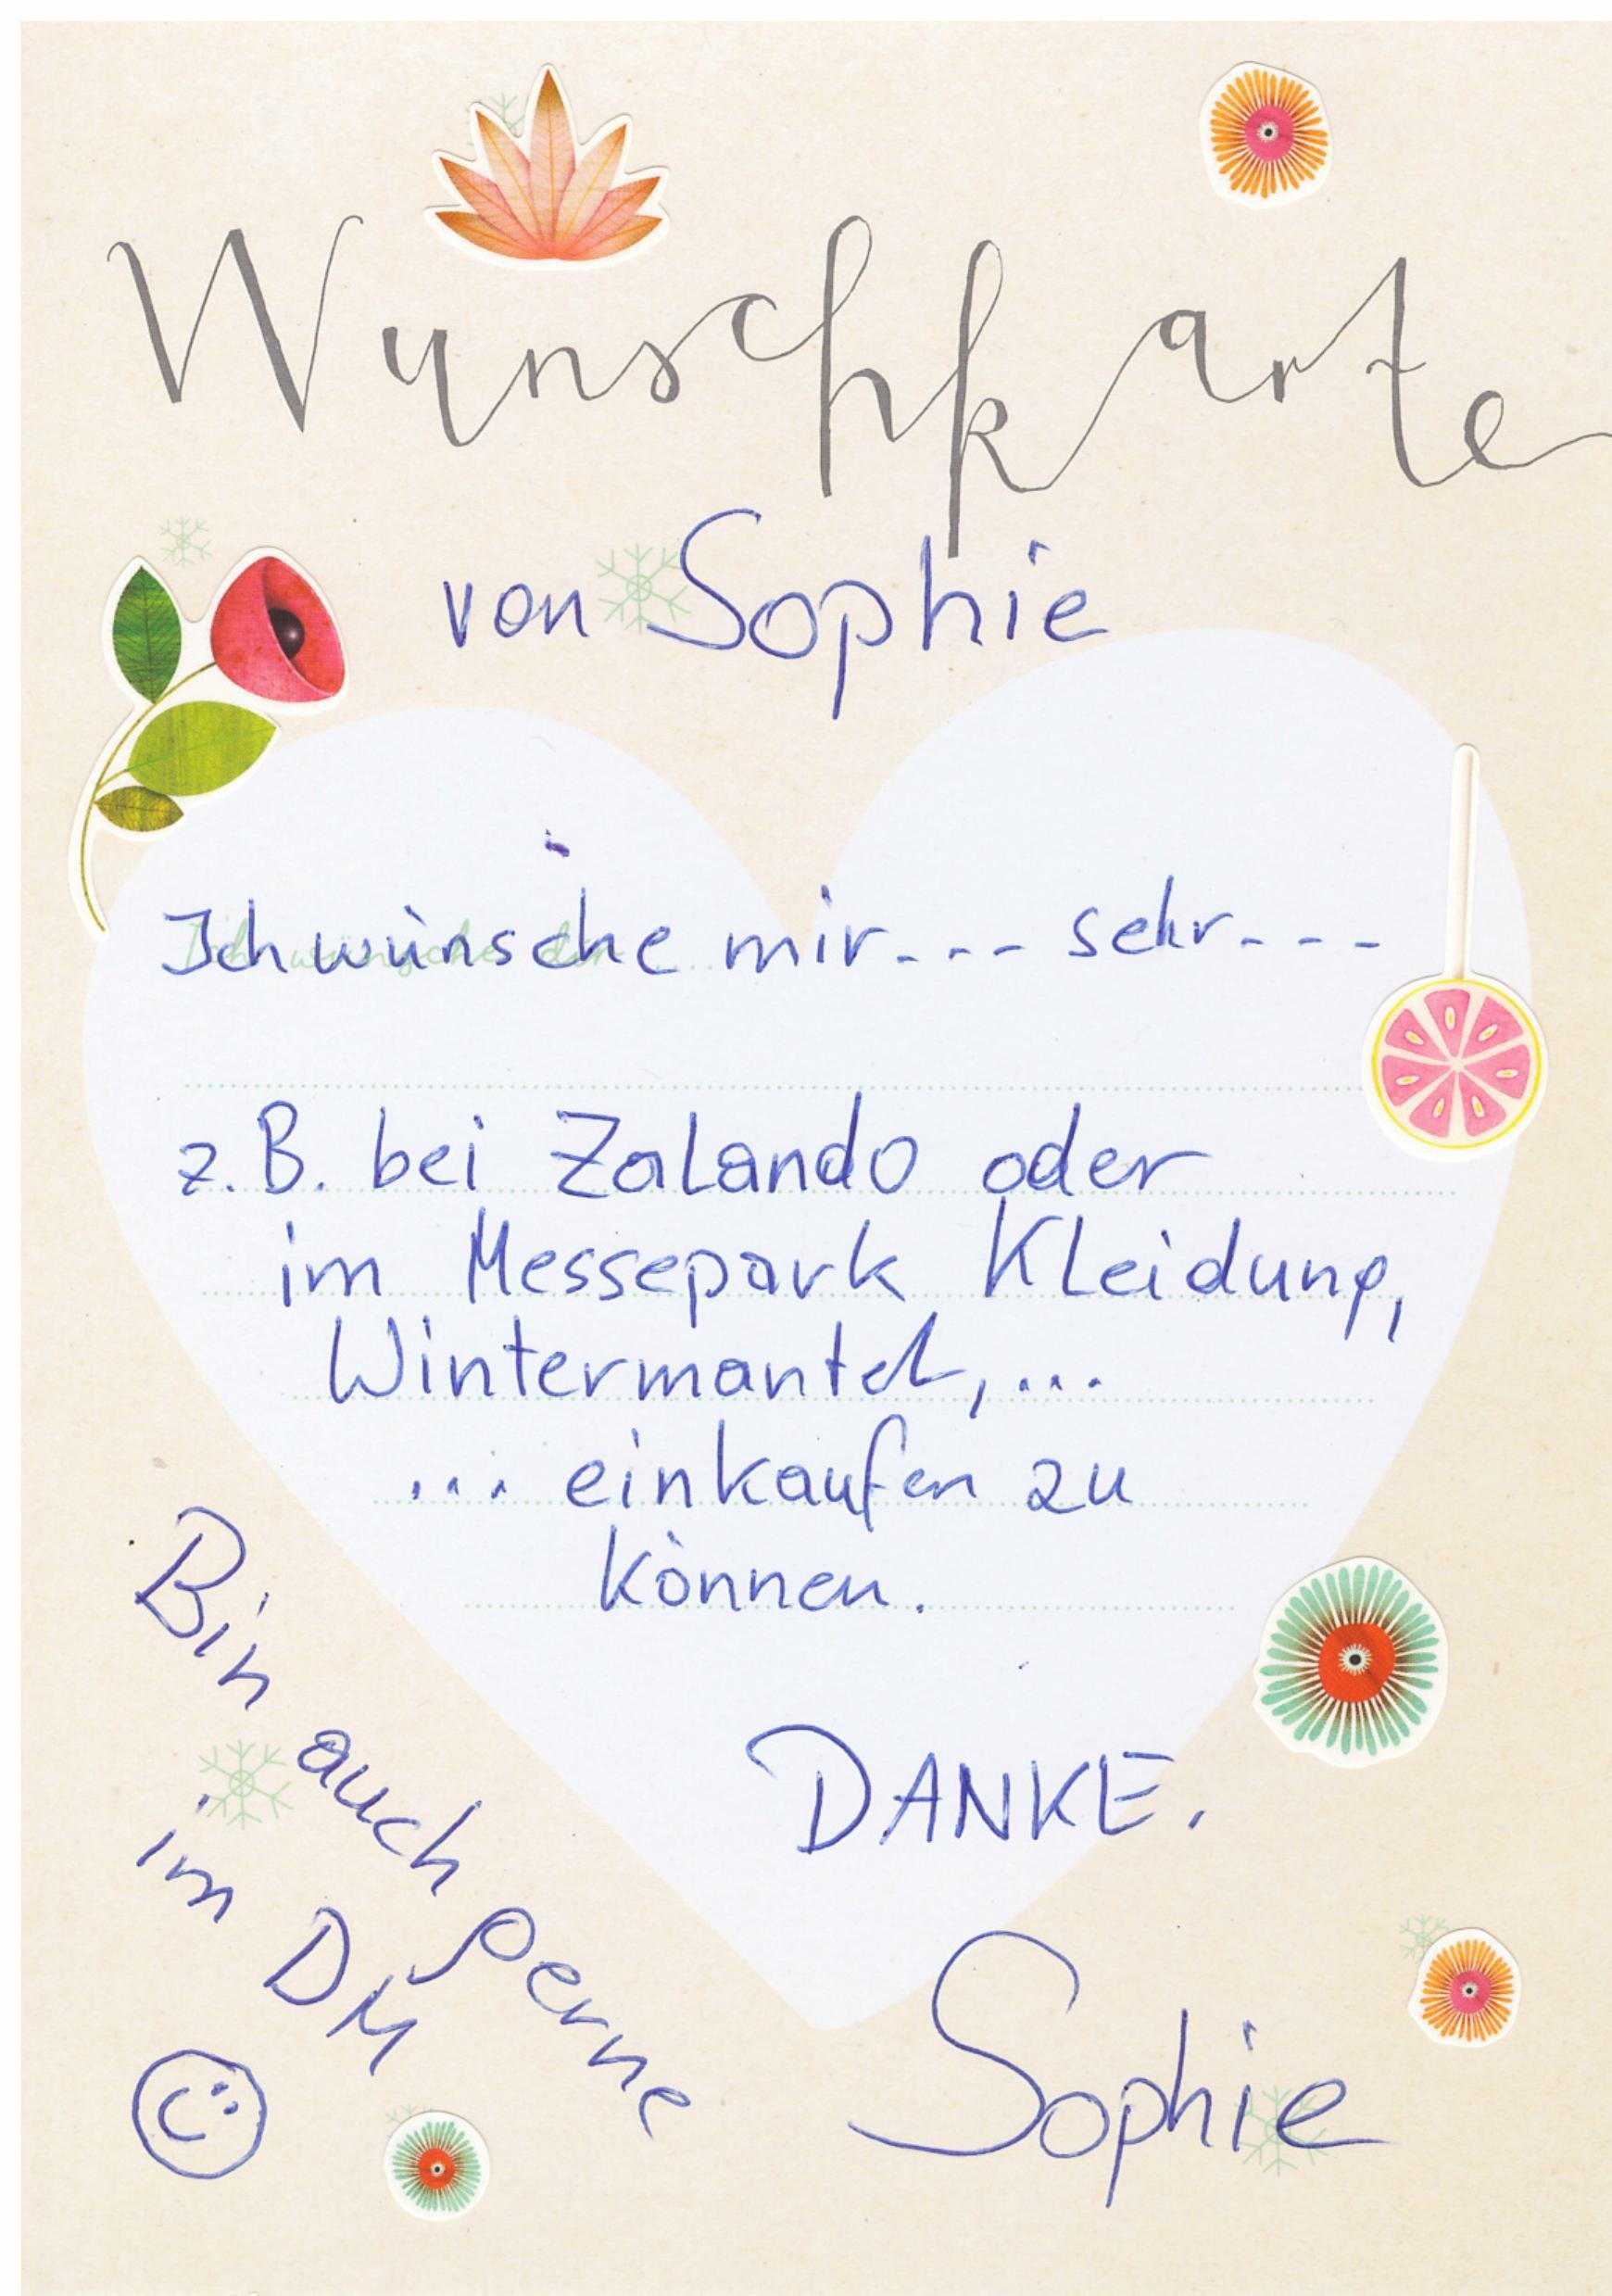 Wunschkarte
von Sophie
Ich wünsche mir--- sehr---
z.B. bei Zalando oder
im Messepark Kleidung,
Wintermantel,...
... einkaufen zu
können.
DANKE.
Bin auch gerne
im DM
Sophie